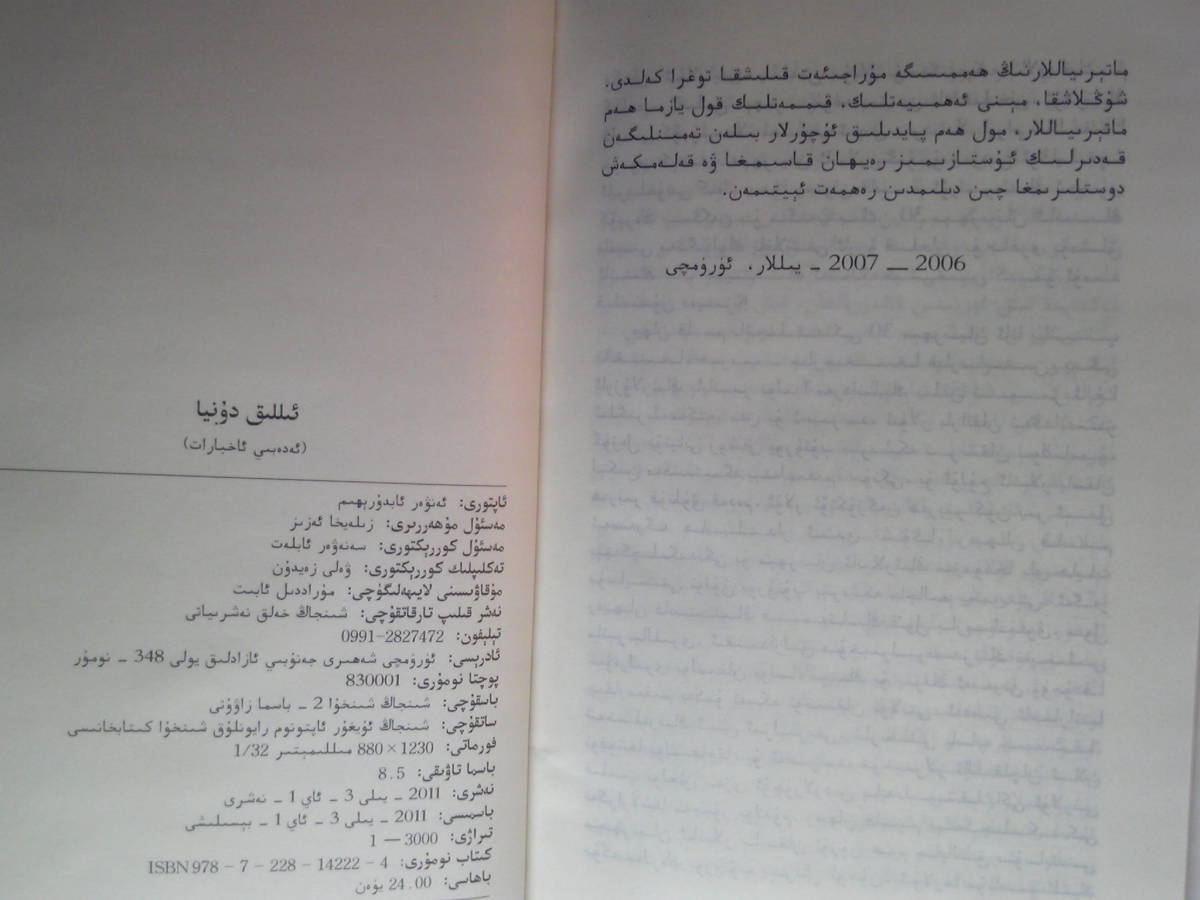 ماتېرىياللارنىڭ ھەممىسىگە مۇراجىئەت قىلىشقا توغرا كەلدى.
شۇڭلاشقا، مېنى ئەھمىيەتلىك، قىممەتلىك قول يازما ھەم
ماتېرىياللار، مول ھەم پايدىلىق ئۇچۇرلار بىلەن تەمىنلىگەن
قەدىرلىك ئۇستازىمىز رەيھان قاسىمغا ۋە قەلەمكەش
دوستلىرىمغا چىن دىلىمدىن رەھمەت ئېيتىمەن.
2006 — 2007 - يىللار، ئۈرۈمچى
ئىللىق دۇنيا
(ئەدەبىي ئاخبارات)
ئاپتورى: ئەنۋەر ئابدۇرېھىم
مەسئۇل مۇھەررىرى: زىلەيخا ئەزىز
مەسئۇل كوررېكتورى: سەنەۋەر ئابلەت
تەكلىپلىك كوررېكتورى: ۋەلى زەيدۇن
مۇقاۋىسىنى لايىھەلىگۈچى: مۇراددىل ئابىت
نەشر قىلىپ تارقاتقۇچى: شىنجاڭ خەلق نەشرىياتى
تېلېفون: 2827472-0991
ئادرېسى: ئۈرۈمچى شەھىرى جەنۇبىي ئازادلىق يولى 348 - نومۇر
پوچتا نومۇرى: 830001
باسقۇچى: شىنجاڭ شىنخۇا 2 - باسما زاۋۇتى
ساتقۇچى: شىنجاڭ ئۇيغۇر ئاپتونوم رايونلۇق شىنخۇا كىتابخانىسى
فورماتى: 1230×880 مىللىمېتىر 1/32
باسما تاۋىقى: 8.5
نەشرى: 2011 - يىلى 3 - ئاي 1 - نەشرى
باسمىسى: 2011 - يىلى 3 - ئاي 1 - بېسىلىشى
تىراژى: 3000 — 1
كىتاب نومۇرى: ISBN 978 - 7 - 228 - 14222 - 4
باھاسى: 24.00 يۈەن